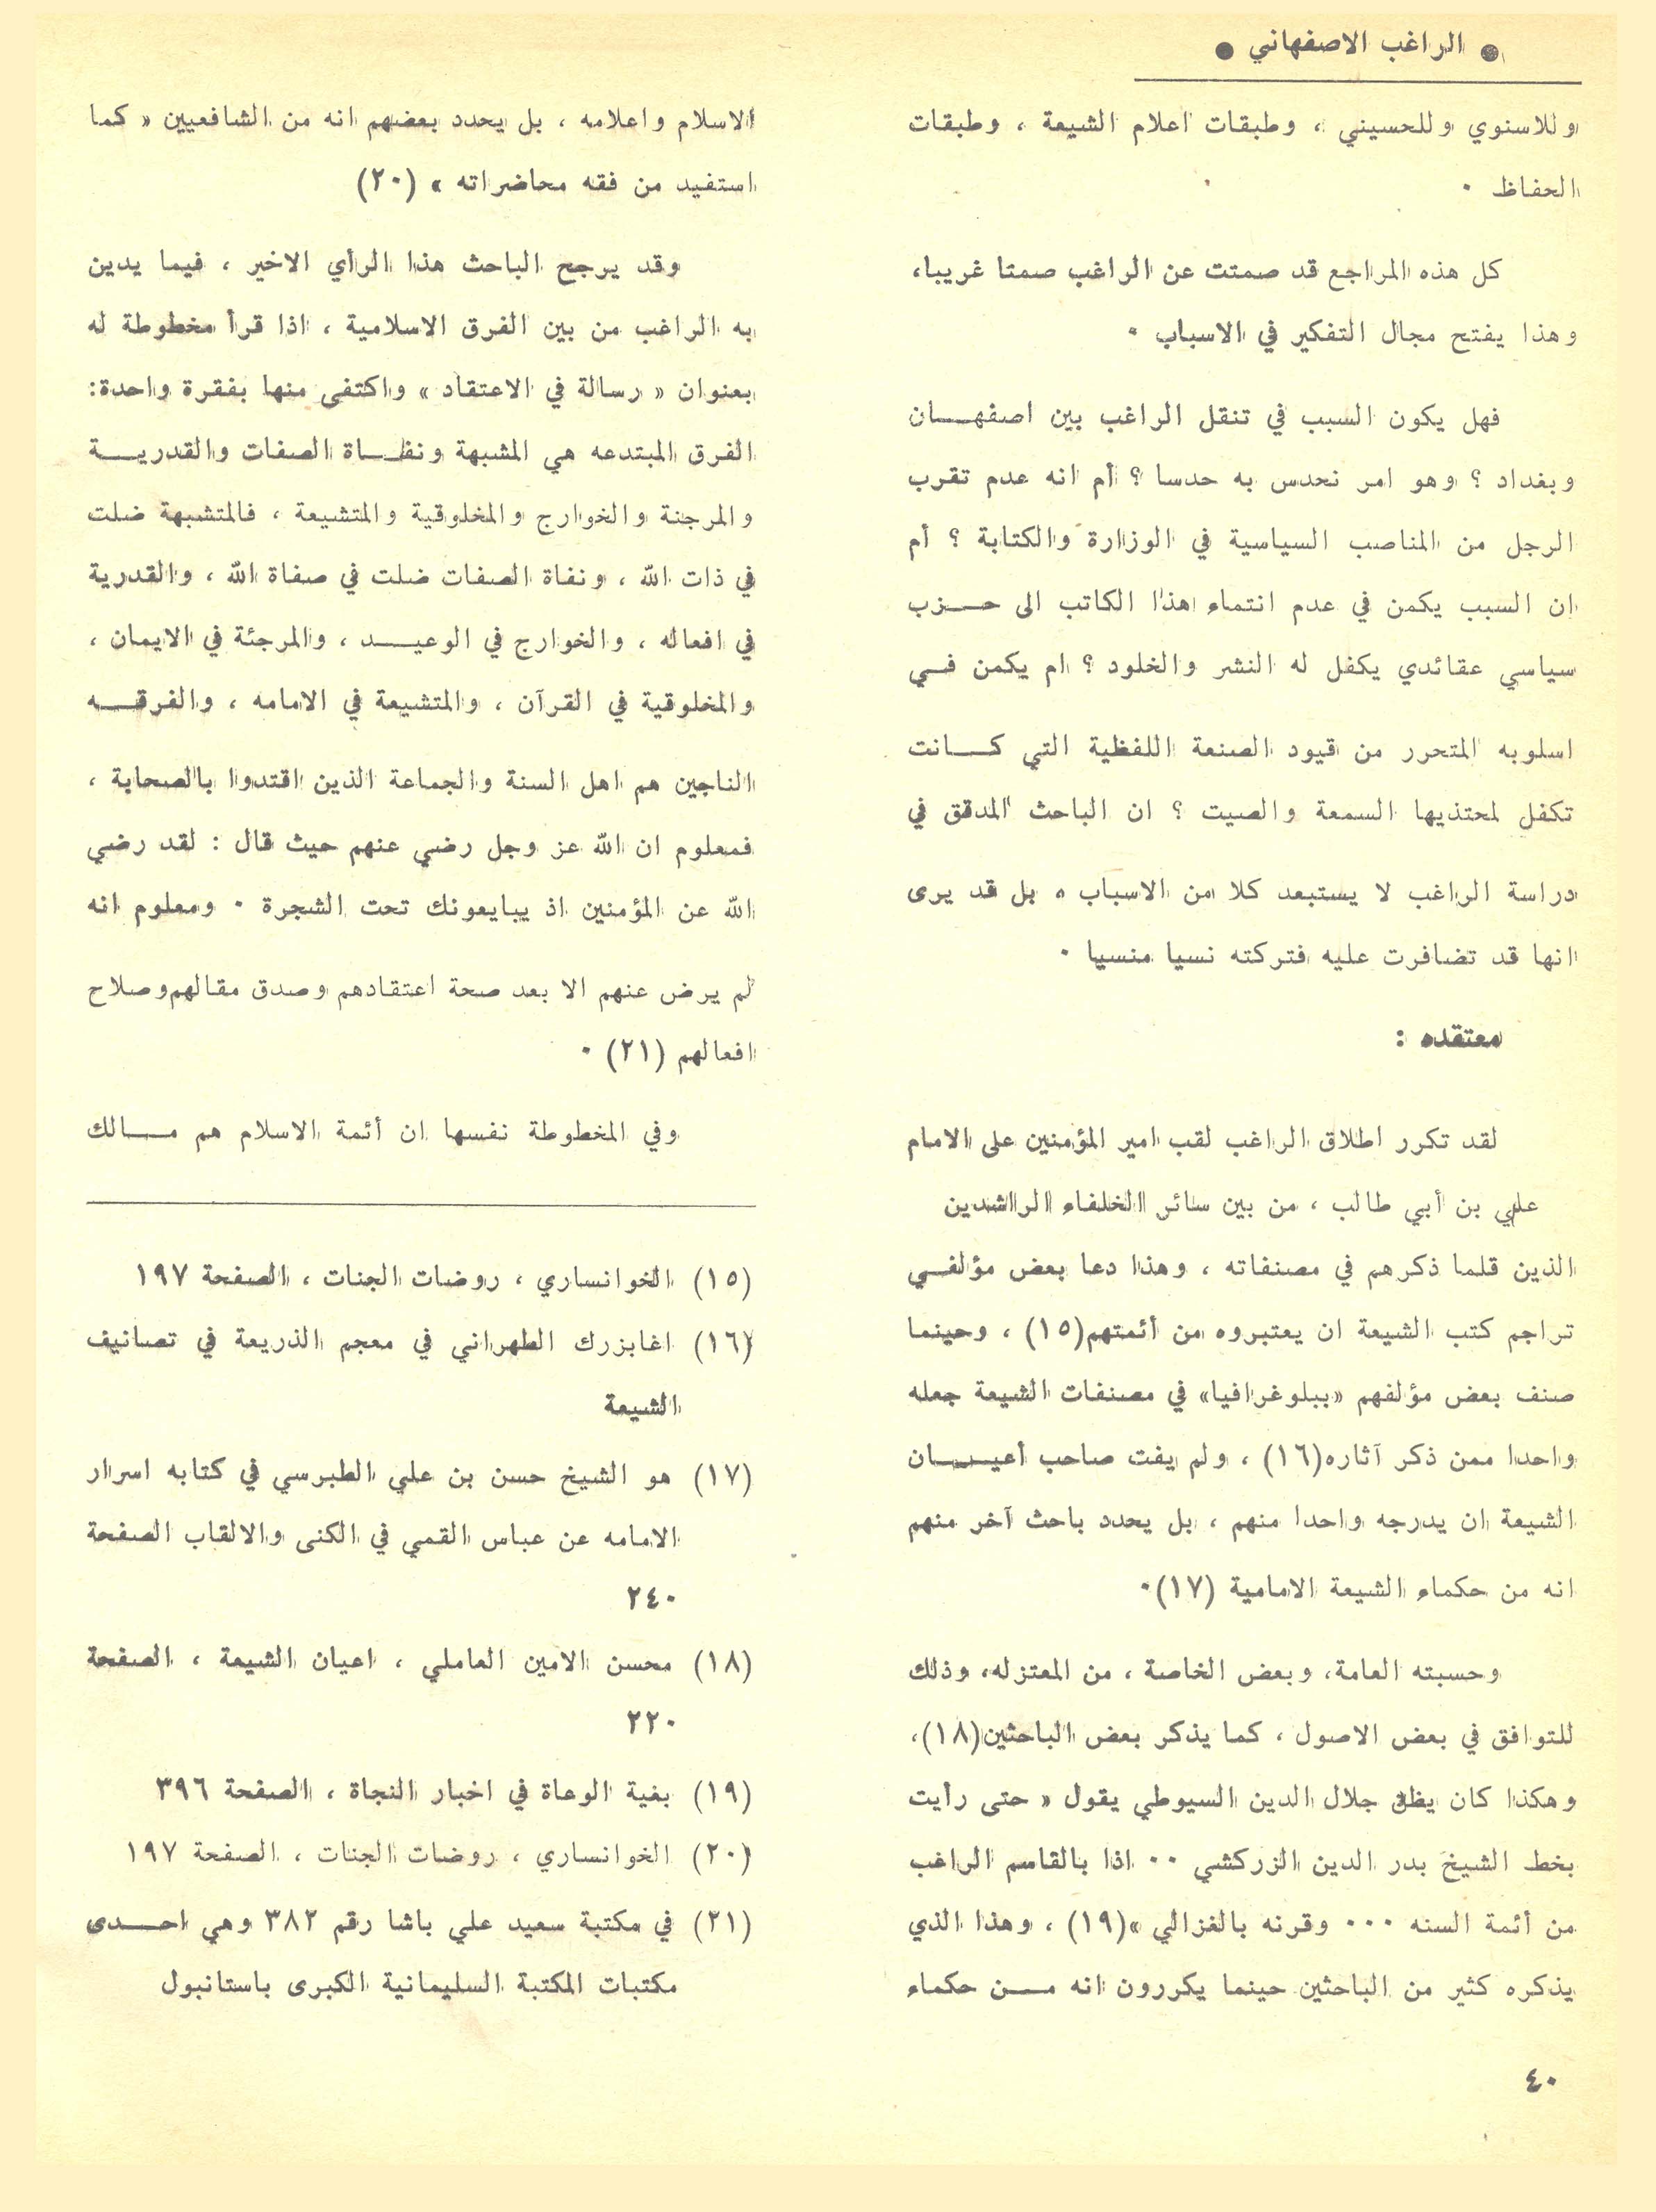 ● الراغب الاصفهاني ●
وللاسنوي وللحسيني ، وطبقات اعلام الشيعة ، وطبقات
الحفاظ ٠
كل هذه المراجع قد صمتت عن الراغب صمتا غريبا،
وهذا يفتح مجال التفكير في الاسباب ٠
فهل يكون السبب في تنقل الراغب بين اصفهـــان
وبغداد ؟ وهو امر نحدس به حدسا ؟ أم انه عدم تقرب
الرجل من المناصب السياسية في الوزارة والكتابة ؟ أم
ان السبب يكمن في عدم انتماء هذا الكاتب الى حــزب
سياسي عقائدي يكفل له النشر والخلود ؟ ام يكمن فــي
اسلوبه المتحرر من قيود الصنعة اللفظية التي كـــانت
تكفل لمحتذيها السمعة والصيت ؟ ان الباحث المدقق في
دراسة الراغب لا يستبعد كلا من الاسباب ، بل قد يرى
انها قد تضافرت عليه فتركته نسيا منسيا ٠
معتقده :
لقد تكرر اطلاق الراغب لقب امير المؤمنين على الامام
علي بن أبي طالب ، من بين سائر الخلفاء الراشدين
الذين قلما ذكرهم في مصنفاته ، وهذا دعا بعض مؤلفــي
تراجم كتب الشيعة ان يعتبروه من أئمتهم(١٥) ، وحينما
صنف بعض مؤلفهم «ببلوغرافيا» في مصنفات الشيعة جعله
واحدا ممن ذكر آثاره(١٦) ، ولم يفت صاحب أعيـــان
الشيعة ان يدرجه واحدا منهم ، بل يحدد باحث آخر منهم
انه من حكماء الشيعة الامامية (١٧)٠
وحسبته العامة، وبعض الخاصة ، من المعتزله، وذلك
للتوافق في بعض الاصول ، كما يذكر بعض الباحثين(١٨)،
وهكذا كان يظن جلال الدين السيوطي يقول « حتى رأيت
بخط الشيخ بدر الدين الزركشي ٠٠ اذا بالقاسم الراغب
من أئمة السنه ٠٠٠ وقرنه بالغزالي »(١٩) ، وهذا الذي
يذكره كثير من الباحثين حينما يكررون انه مــن حكماء
الاسلام واعلامه ، بل يحدد بعضهم انه من الشافعيين « كما
استفيد من فقه محاضراته » (٢٠)
وقد يرجح الباحث هذا الرأي الاخير ، فيما يدين
به الراغب من بين الفرق الاسلامية ، اذا قرأ مخطوطة له
بعنوان « رسالة في الاعتقاد » واكتفى منها بفقرة واحدة:
الفرق المبتدعه هي المشبهة ونفــاة الصفات والقدريــة
والمرجئة والخوارج والمخلوقية والمتشيعة ، فالمتشبهة ضلت
في ذات الله ، ونفاة الصفات ضلت في صفاة الله ، والقدرية
في افعاله ، والخوارج في الوعيــد ، والمرجئة في الايمان ،
والمخلوقية في القرآن ، والمتشيعة في الامامه ، والفرقــه
الناجين هم اهل السنة والجماعة الذين اقتدوا بالصحابة ،
فمعلوم ان الله عز وجل رضي عنهم حيث قال : لقد رضي
الله عن المؤمنين اذ يبايعونك تحت الشجرة ٠ ومعلوم انه
لم يرض عنهم الا بعد صحة اعتقادهم وصدق مقالهم وصلاح
افعالهم (٢١) ٠
وفي المخطوطة نفسها ان أئمة الاسلام هم مـــالك
(١٥) الخوانساري ، روضات الجنات ، الصفحة ١٩٧
(١٦) اغابزرك الطهراني في معجم الذريعة في تصانيف
الشيعة
(١٧) هو الشيخ حسن بن علي الطبرسي في كتابه اسرار
الامامه عن عباس القمي في الكنى والالقاب الصفحة
٢٤٠
(١٨) محسن الامين العاملي ، اعيان الشيعة ، الصفحة
٢٢٠
(١٩) بغية الوعاة في اخبار النجاة ، الصفحة ٣٩٦
(٢٠) الخوانساري ، روضات الجنات ، الصفحة ١٩٧
(٢١) في مكتبة سعيد علي باشا رقم ٣٨٢ وهي احــدى
مكتبات المكتبة السليمانية الكبرى باستانبول
٤٠